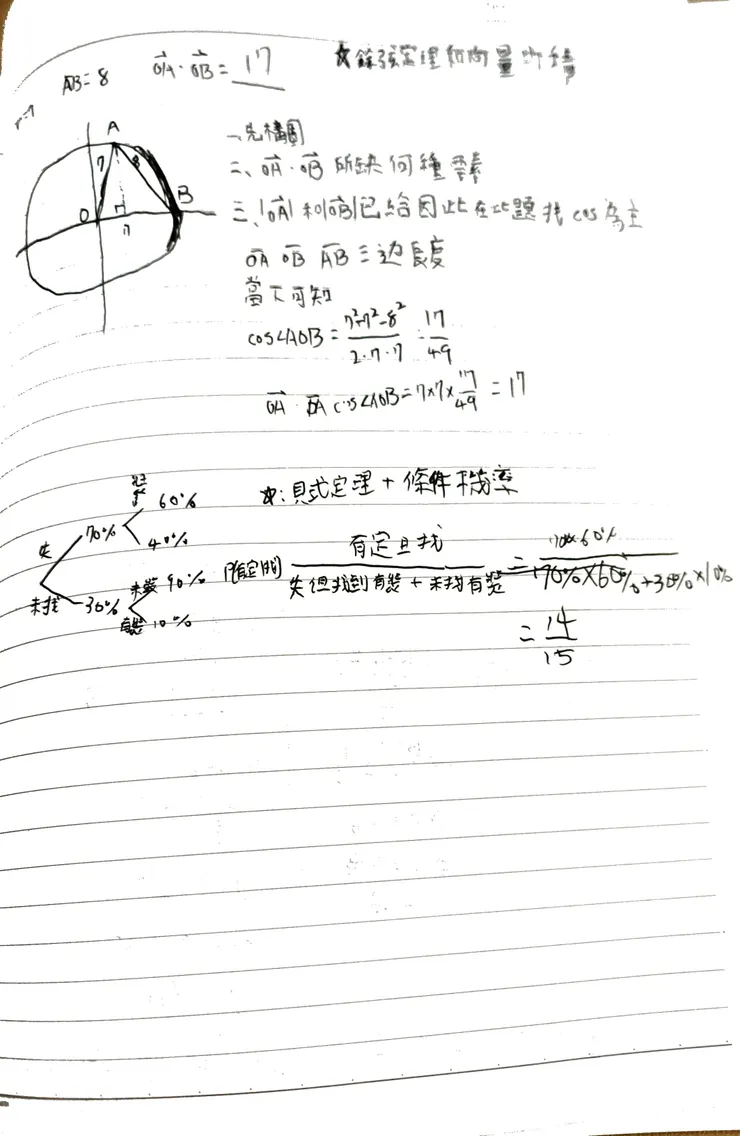 AB=8 OA·OB = 17 ☆餘弦定理和向量內積
r=7
A
7 8
O B
7
一、先構圖
二、OA·OB 所缺何種要素
三、|OA| 和 |OB| 已給因此在此題找 cos 為主
OA OB AB 三边長度
當下可知
cos∠AOB = 7²+7²-8² / 2·7·7 = 17/49
OA · OA cos∠AOB = 7×7× 17/49 = 17
☆: 貝式定理 + 條件機率
失 70% 60%
40%
未找 30% 未裝 90%
有裝 10%
有定且找 / 失但找到有裝 + 未找有裝 = 70%×60% / 70%×60%+30%×10%
= 14/15